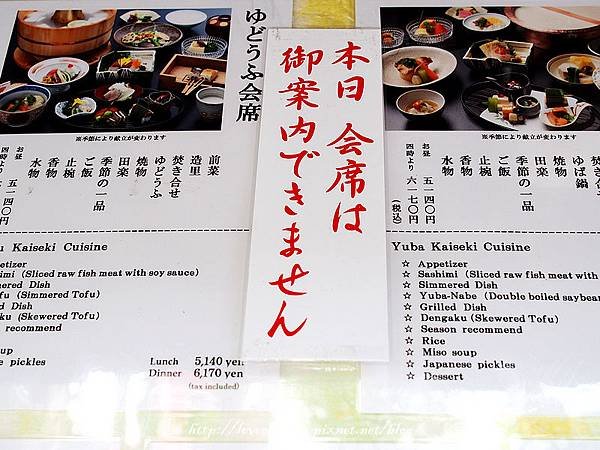 本日 会席は
御案内できません
ゆどうふ会席
※季節により献立が変わります
前菜
造里
焚き合せ
ゆどうふ
焼物
田楽
季節の一品
ご飯
止椀
香物
水物
お昼 五一四〇円
四時より 六
Kaiseki Cuisine
(Sliced raw fish meat with soy sauce)
Dish
(Simmered Tofu)
Dish
(Skewered Tofu)
recommend
pickles
Lunch 5,140 yen
Dinner 6,170 yen
(tax included)
※季節により献立が変わります
ゆば鍋
焼物
田楽
季節の一品
ご飯
止椀
香物
水物
お昼 五一四〇円
四時より 六一七〇円
(税込)
Yuba Kaiseki Cuisine
☆ Appetizer
☆ Sashimi (Sliced raw fish meat with
☆ Simmered Dish
☆ Yuba-Nabe (Double boiled soybean
☆ Grilled Dish
☆ Dengaku (Skewered Tofu)
☆ Season recommend
☆ Rice
☆ Miso soup
☆ Japanese pickles
☆ Dessert